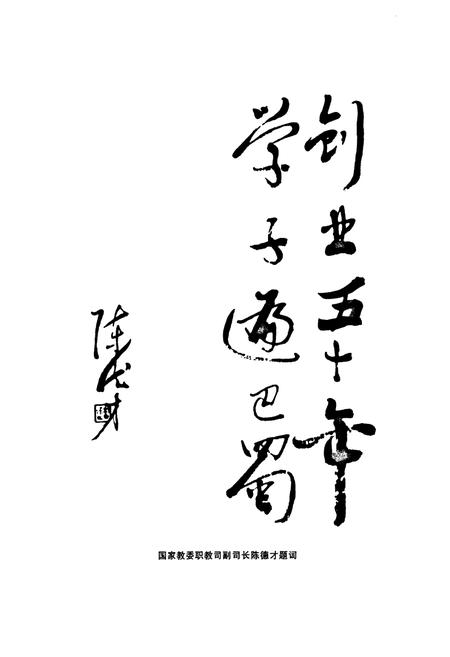 创业五十年
学子遍巴蜀
陈德才
国家教委职教司副司长陈德才题词